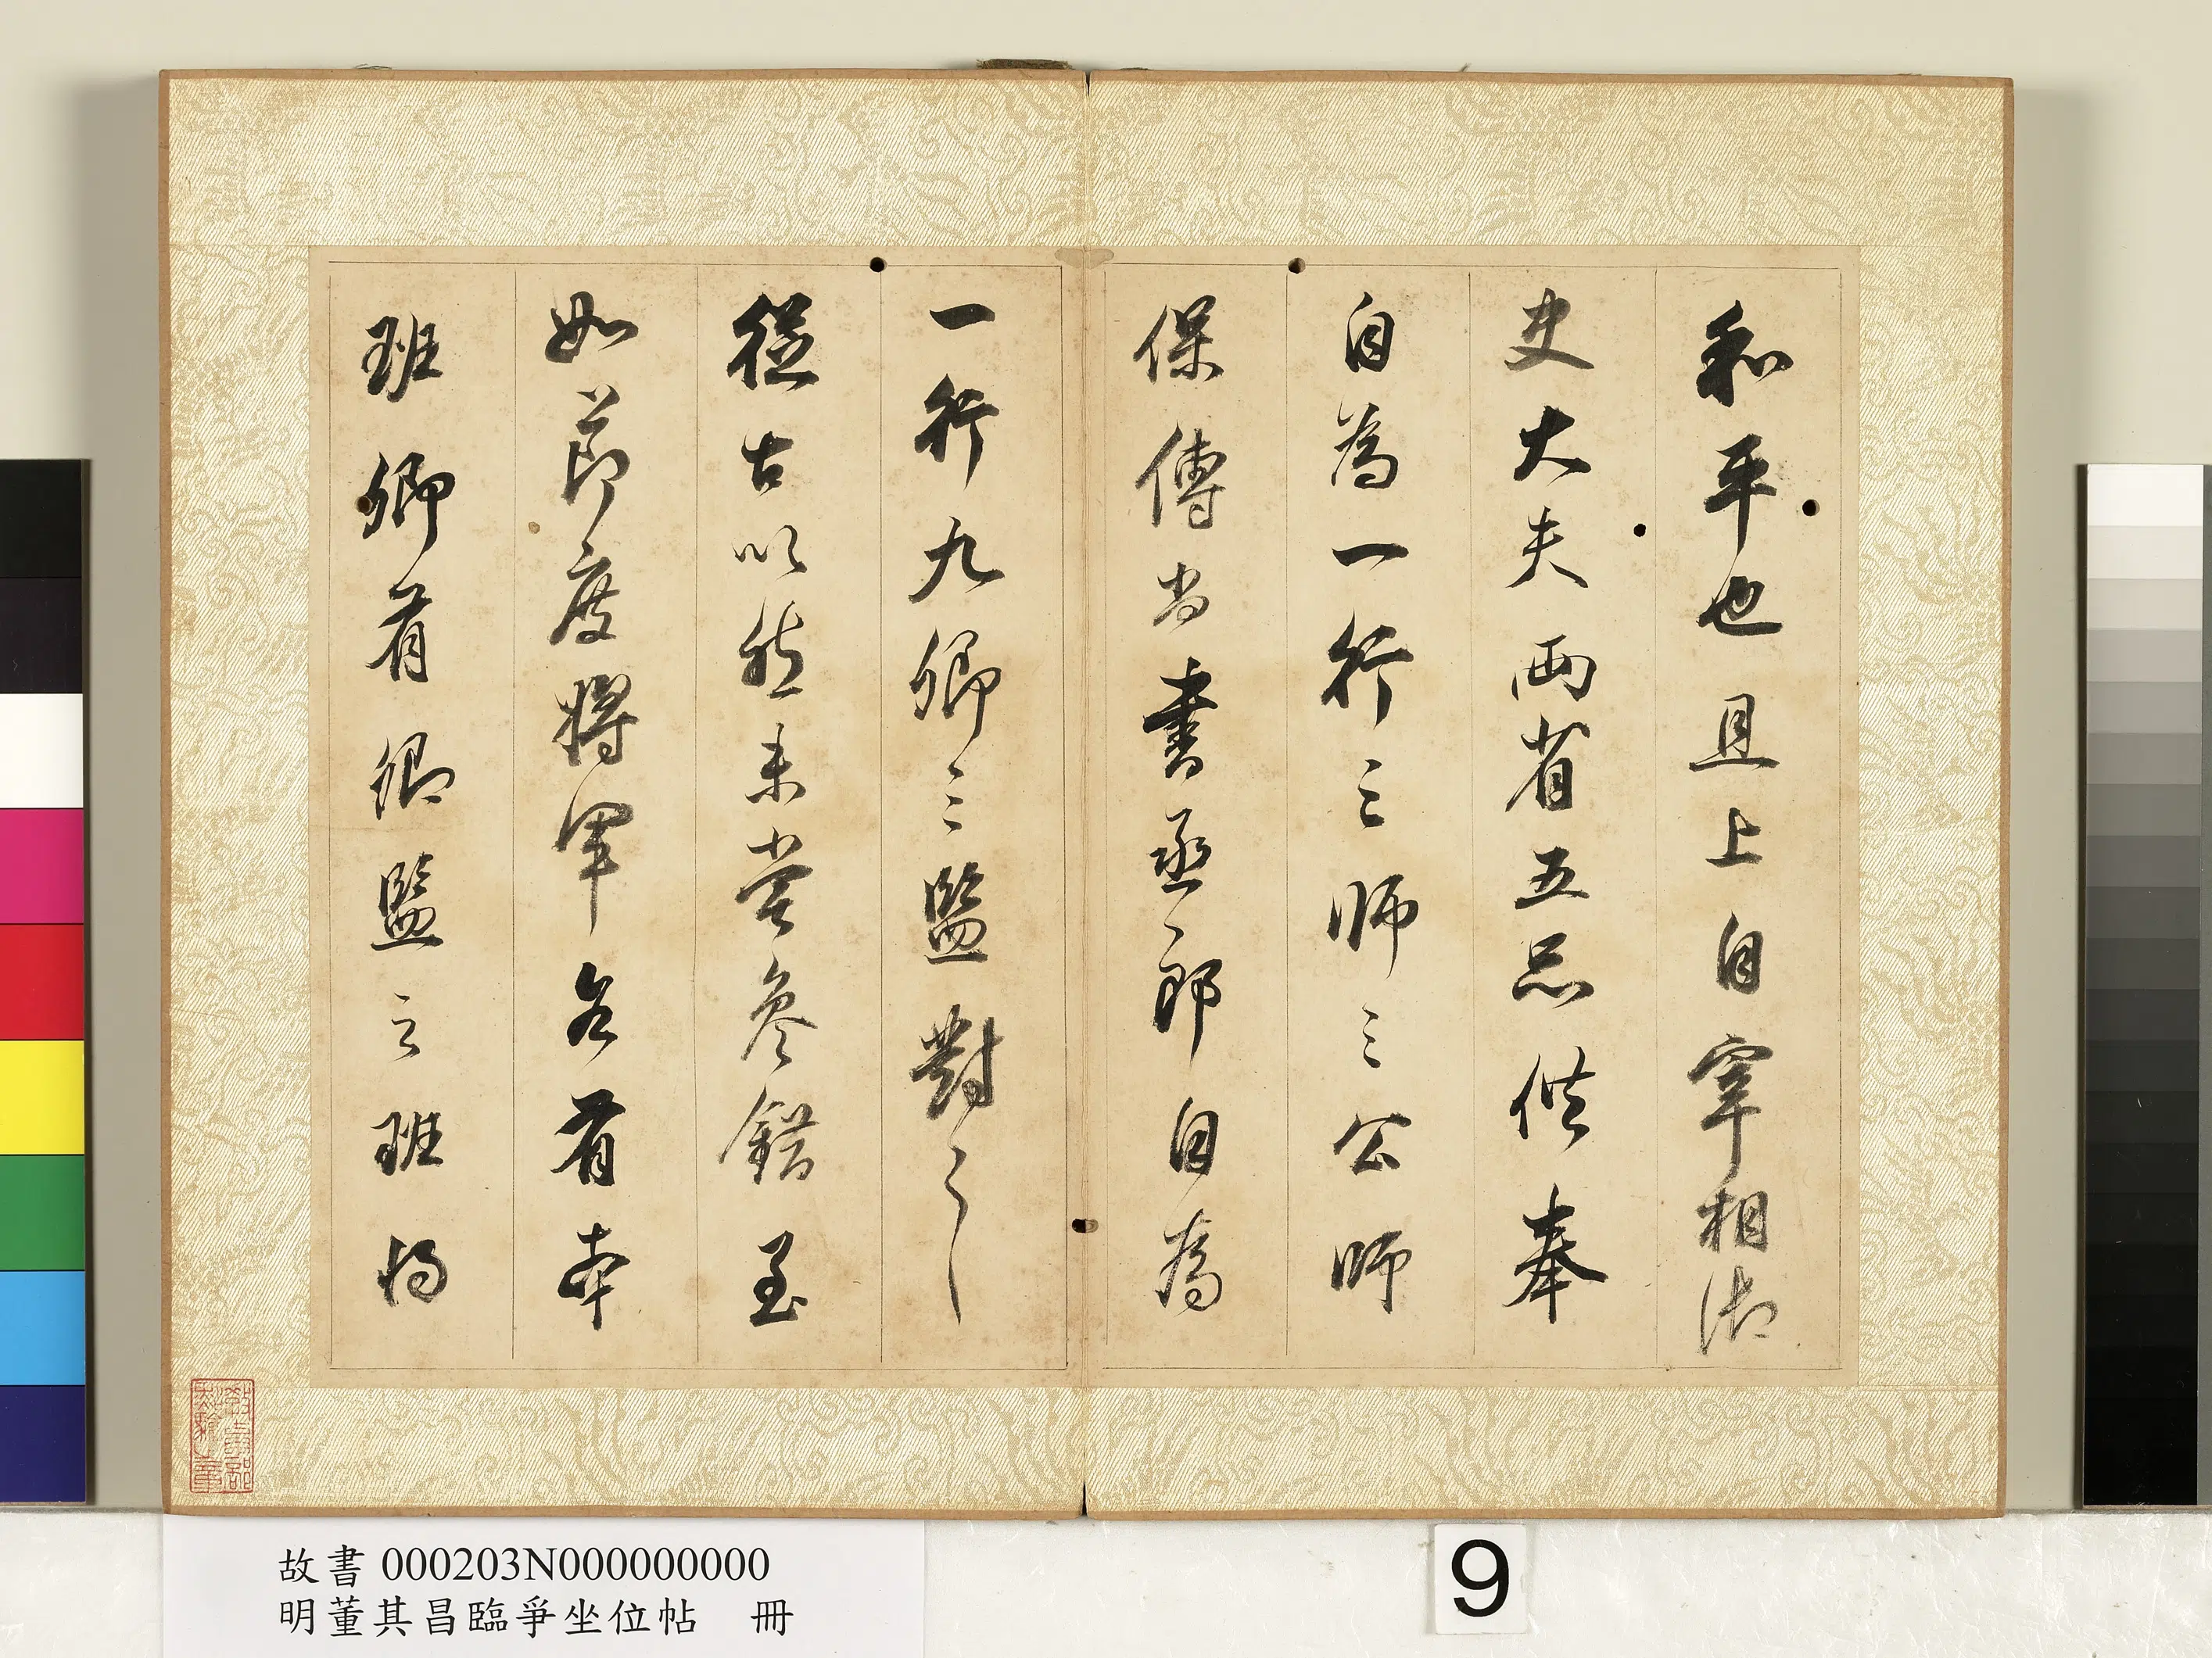 和平也且上自宰相御
史大夫兩省五品供奉
自為一行三師三公師
保傅尚書丞郎自為
一行九卿三監對之
從古以然未嘗參錯至
如節度將軍各有本
班卿有卿監之班將
教育部點驗之章
故書 000203N000000000
明董其昌臨爭坐位帖 冊
9